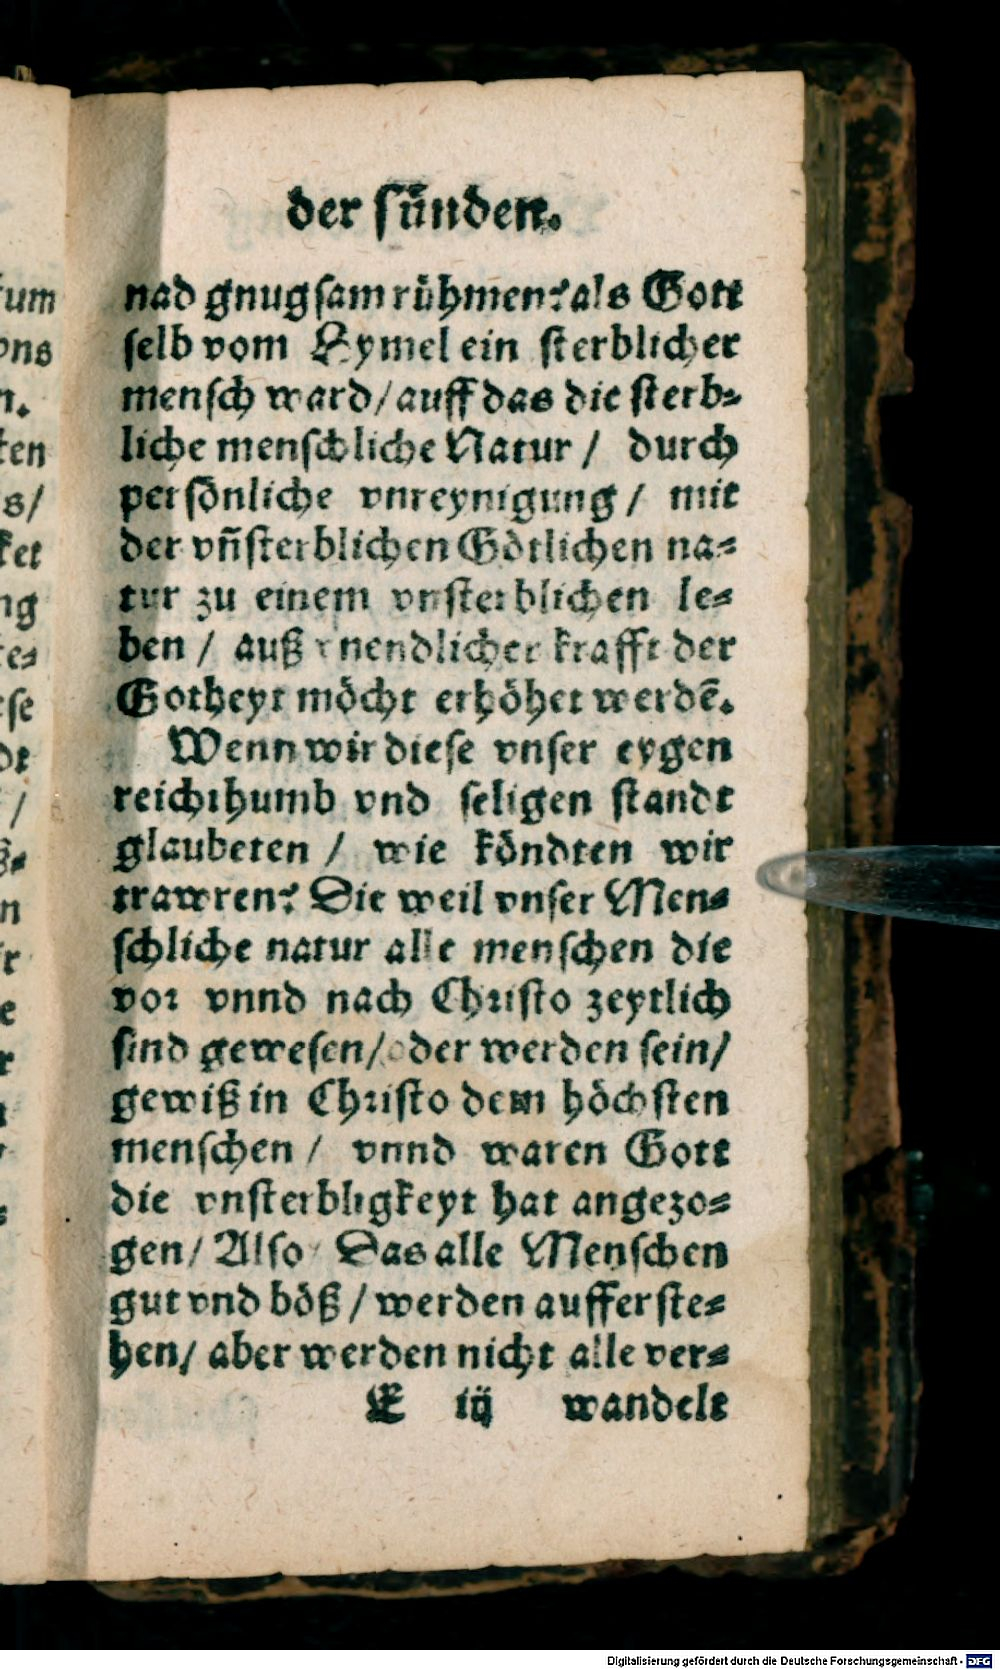 der sünden.
nad gnugsam rühmen? als Gott
selb vom Hymel ein sterblicher
mensch ward / auff das die sterb⸗
liche menschliche Natur / durch
persönliche vnreynigung / mit
der vn̄sterblichen Götlichen na⸗
tur zu einem vnsterblichen le⸗
ben / auß vnendlicher krafft der
Gotheyt möcht erhöhet werdē.
Wenn wir diese vnser eygen
reichthumb vnd seligen standt
glaubeten / wie köndten wir
trawren? Die weil vnser Men⸗
schliche natur alle menschen die
vor vnnd nach Christo zeytlich
sind gewesen / oder werden sein /
gewiß in Christo dem höchsten
menschen / vnnd waren Gott
die vnsterbligkeyt hat angezo⸗
gen / Also / Das alle Menschen
gut vnd böß / werden aufferste⸗
hen / aber werden nicht alle ver⸗
E iij wandelt
um
vns
n.
ten
s /
ket
ng
te⸗
se
dt
/
ß⸗
n
r
e
r
Digitalisierung gefördert durch die Deutsche Forschungsgemeinschaft - DFG